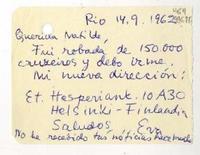 Rio 14.9.1962
Querida Matilde,
Fui robada de 150.000
cruzeiros y debo irme.
Mi nueva dirección:
Et. Hesperiank. 10 A 30
Helsinki - Finlandia
Saludos, Eva
No he recebido tus notícias hace mucho